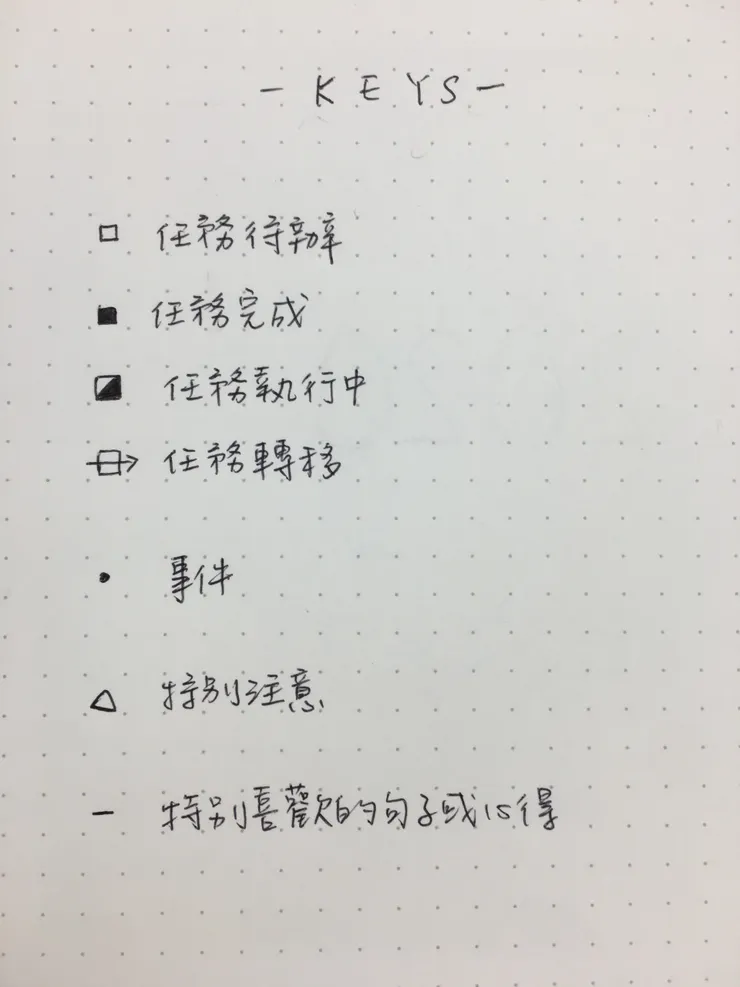 - KEYS -
□ 任務待辦
■ 任務完成
◪ 任務執行中
任務轉移
• 事件
△ 特別注意
- 特別喜歡的句子或心得